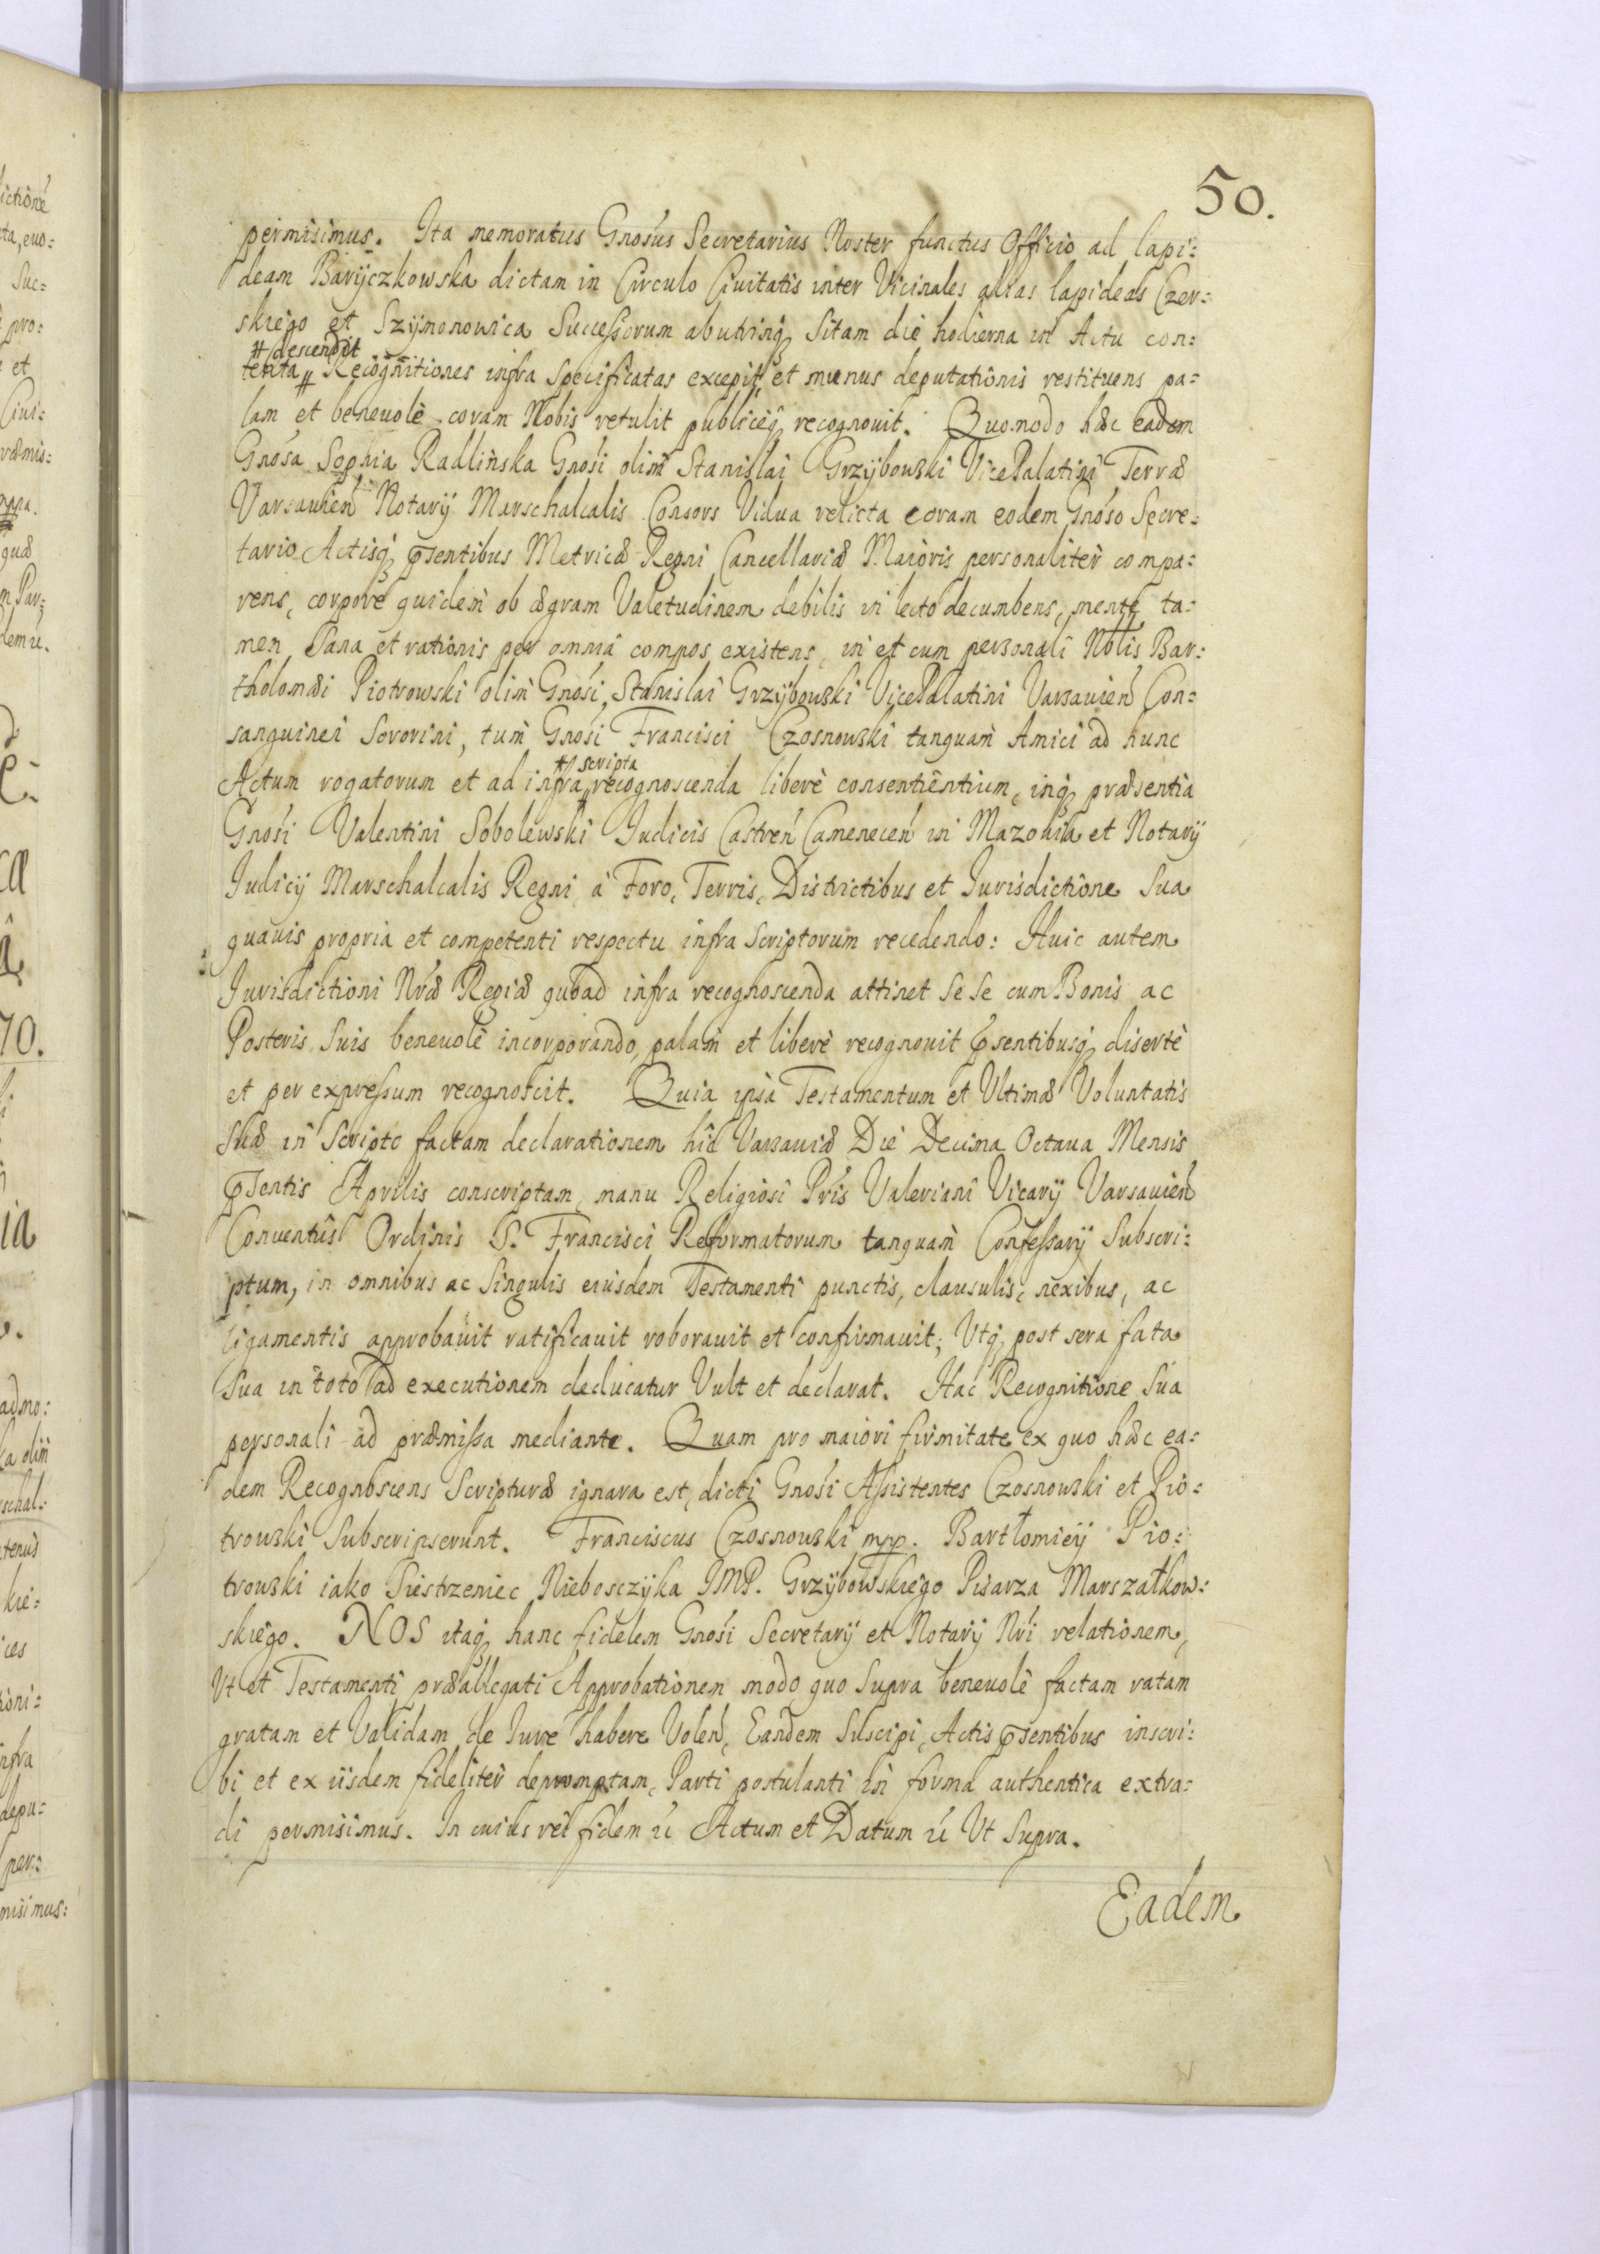 50.
permisimus. Ita memoratus Gnosus Secretarius Noster functus Officio ad lapi:
deam Baryczkowska dictam in Circulo Civitatis inter Vicinales alias lapideas Czer:
skiego et Szymonowica Successorum ab utrinq sitam die hodierna in Actu con:
# descendit
tenta # Recognitiones infra specificatas excepit, et munus deputationis restituens pa:
lam et beneuolè coram Nobis retulit publiceq recognouit. Quomodo hæc eadem
Gnosa Sophia Radlińska Gnosi olim Stanislai Grzybowski VicePalatini Terræ
Varsauien Notarij Marschalcalis Consors Vidua relicta coram eodem Gnoso Secre:
tario Actisq pñsentibus Metricæ Regni Cancellariæ Maioris personaliter compa:
rens, corpore quidem ob ægram Valetudinem debilis in lecto decumbens, mente ta:
men sana et rationis per omnia compos existens, in et cum personali Nblis Bar:
tholomæi Piotrowski olim Gnosi Stanislai Grzybowski VicePalatini Varsauien Con:
sanguinei Sororini, tum Gnosi Francisci Czosnowski tanquam Amici ad hunc
# scripta
Actum rogatorum et ad infra # recognoscenda liberè consentientium, inq præsentia
Gnosi Valentini Sobolewski Iudicis Castren Camenecen in Mazouia et Notarij
Iudicij Marschalcalis Regni, à Foro, Terris, Districtibus et Iurisdictione sua
quauis propria et competenti respectu infra scriptorum recedendo: Huic autem
Iurisdictioni Nræ Regiæ quoad infra recognoscenda attinet se se cum Bonis ac
Posteris suis beneuolè incorporando, palam et liberè recognouit pñsentibusq disertè
et per expressum recognoscit. Quia ipsa Testamentum et Ultimæ Voluntatis
suæ in scripto factam declarationem hic Varsauiæ Die Decima Octaua Mensis
pñsentis Aprilis conscriptam, manu Religiosi Pris Valeriani Vicarij Varsauien
Conuentus Ordinis S. Francisci Reformatorum tanquam Confessarij subscri:
ptum, in omnibus ac singulis eiusdem Testamenti punctis, clausulis, nexibus, ac
ligamentis approbauit ratificauit roborauit et confirmauit; Vtq post sera fata
sua in toto ad executionem deducatur Vult et declarat. Hac Recognitione sua
personali ad præmissa mediante. Quam pro maiori firmitate ex quo hæc ea:
dem Recognoscens scripturæ ignara est, dicti Gnosi Assistentes Czosnowski et Pio:
trowski subscripserunt. Franciscus Czosnowski mpp. Bartłomieÿ Pio:
trowski iako Siestrzeniec Nieboszczyka JMP. Grzybowskiego Pisarza Marszałkow:
skiego. NOS itaq hanc fidelem Gnosi Secretarij et Notarij Nri relationem,
Vt et Testamenti præallegati Approbationem modo quo supra beneuolè factam ratam
gratam et Validam de Iure habere Volen, Eandem suscipi, Actis pñsentibus inscri:
bi et ex iisdem fideliter depromptam, Parti postulanti in forma authentica extra:
di permisimus. In cuius rei fidem &c Actum et Datum &c Vt Supra.
Eadem